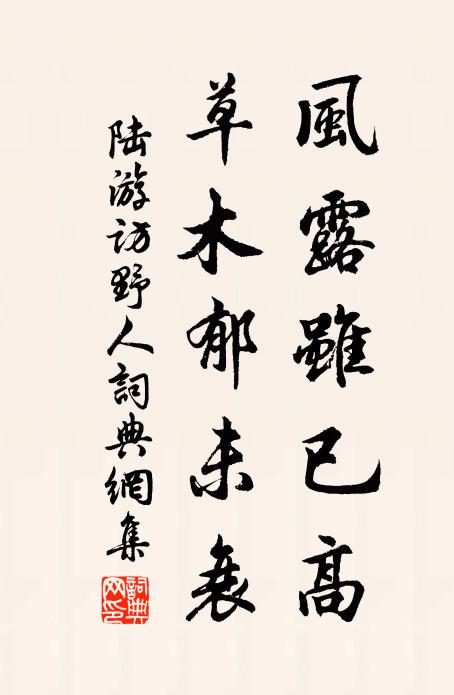 風露雖已高
草木郁未衰
陆游访野人詞典網集
詞典
网印